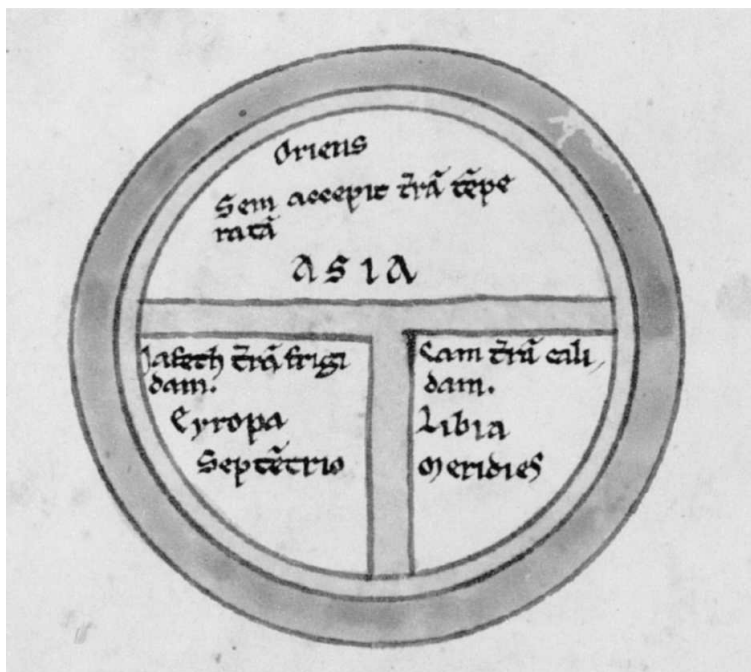 Oriens
Sem accepit t̄rā tēpe
ratā
ASIA
Iafeth t̄rā frigi
dam.
Eyropa
Septētrio
Cam t̄rā cali,
dam.
Libia
Meridies